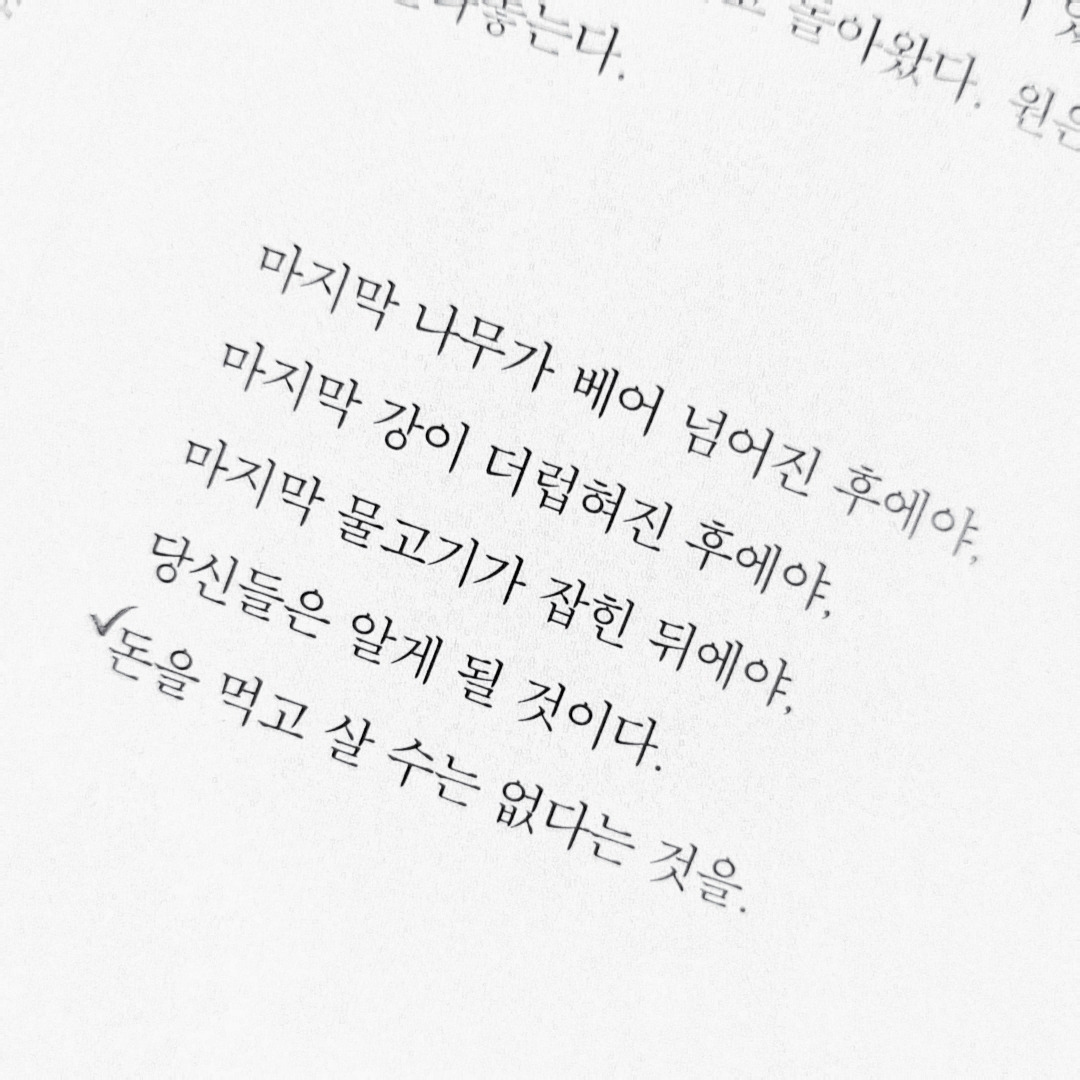 돌아왔다. 원은
마지막 나무가 베어 넘어진 후에야,
마지막 강이 더럽혀진 후에야,
마지막 물고기가 잡힌 뒤에야,
당신들은 알게 될 것이다.
✓돈을 먹고 살 수는 없다는 것을.